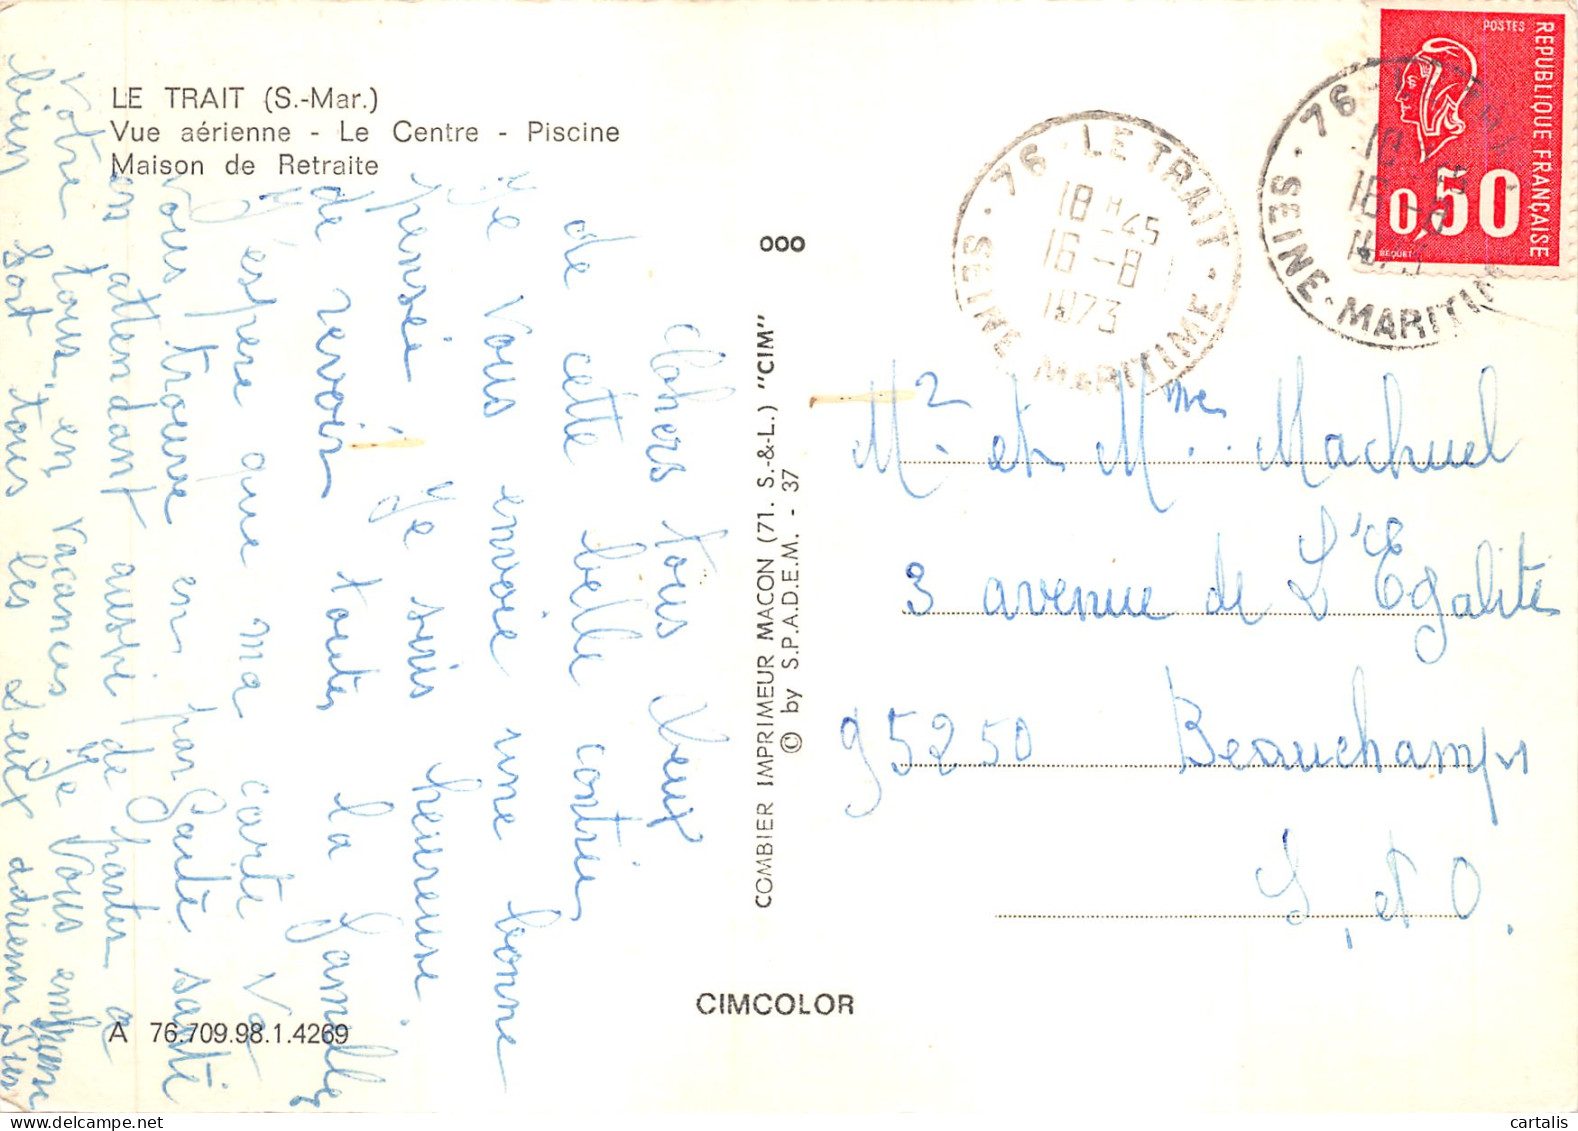 LE TRAIT (S.-Mar.)
Vue aérienne - Le Centre - Piscine
Maison de Retraite
Chers tous deux
de cette belle contrée
Je vous envoie une bonne
pensée Je suis heureuse
de revoir toute la famille
J'espère que ma carte va
vous trouve en parSaité santé
en attendant aussi de partir a
votre tous en vacances Je vous embrasse
bien Sort tous les deux adrienn
COMBIER IMPRIMEUR MACON (71. S.-&-L.) "CIM"
© by S.P.A.D.E.M. - 37
000
CIMCOLOR
A 76.709.98.1.4269
76 - LE TRAIT
18 H 45
16 - 8
1973
SEINE MARITIME
76
SEINE - MARITIM
POSTES
REPUBLIQUE FRANÇAISE
0,50
BEQUET
Mr et Mme Machuel
3 avenue de L'Egalité
95250 Beauchamps
S. et O.
cartalis